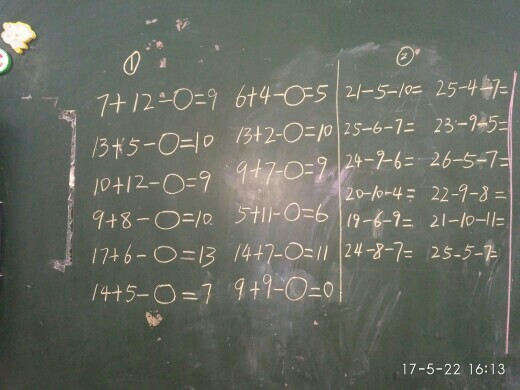 ① ②
7+12-○=9 6+4-○=5 21-5-10= 25-4-7=
13+5-○=10 13+2-○=10 25-6-7= 23-9-5=
10+12-○=9 9+7-○=9 24-9-6= 26-5-7=
9+8-○=10 5+11-○=6 20-10-4= 22-9-8=
17+6-○=13 14+7-○=11 19-6-9= 21-10-11=
14+5-○=7 9+9-○=0 24-8-7= 25-5-7=
17-5-22 16:13